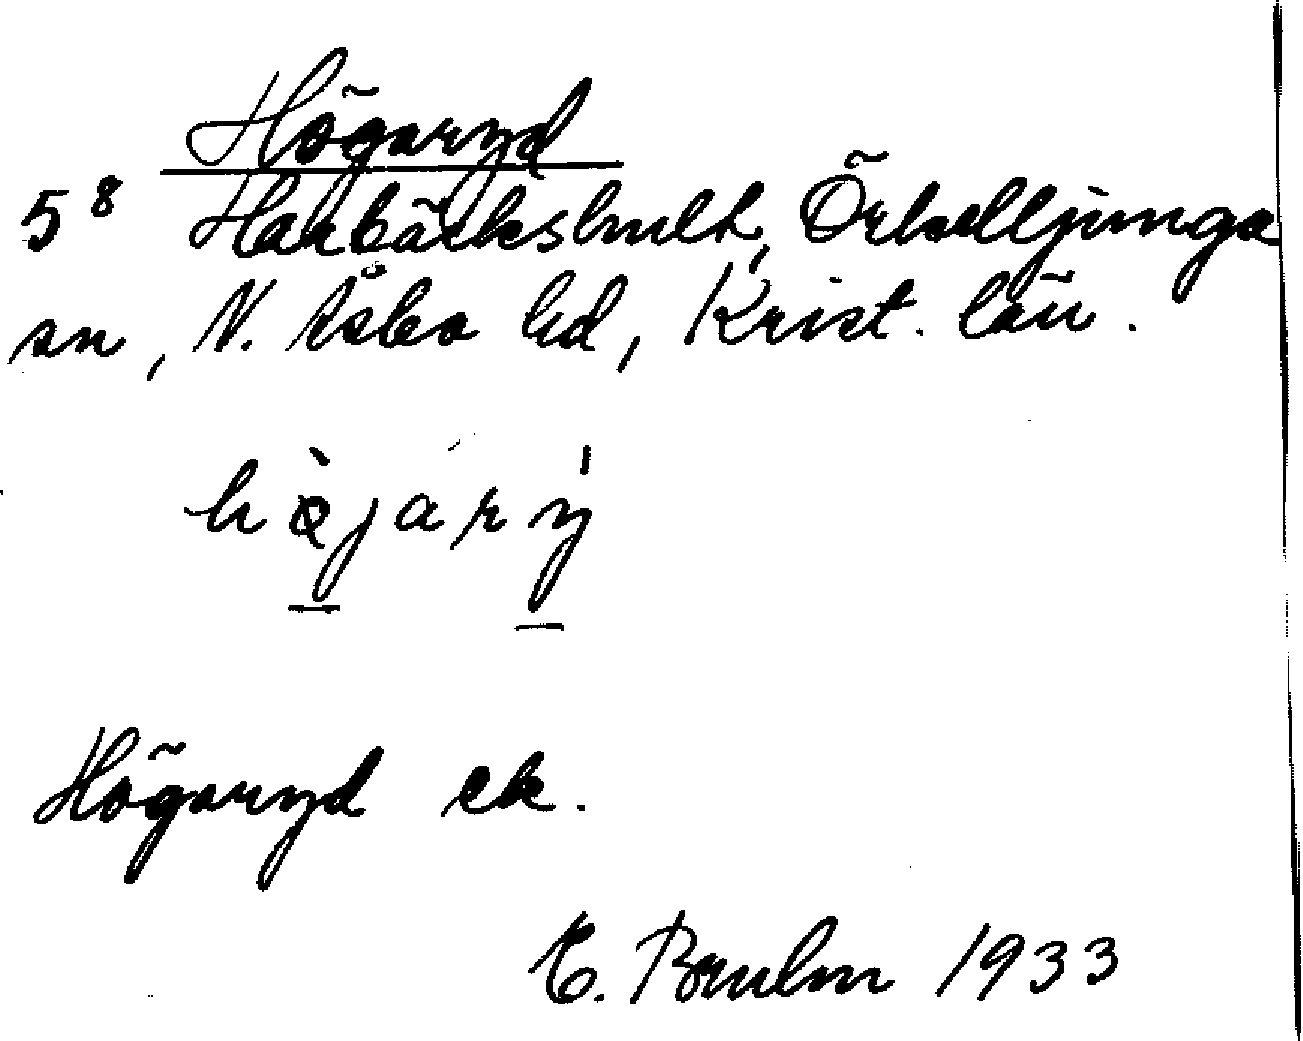 Högaryd
5⁸ Harbäckshult, Örkelljunga
sn, N. Åsbo hd, Krist. län.
hø̀jarý
Högaryd ek.
E. Bruhn 1933